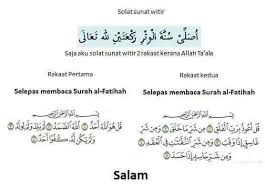 Solat sunat witir
اُصَلِّىْ سُنَّةَ الْوِتْرِ رَكْعَتَيْنِ لِلّٰهِ تَعَالَى
Saja aku solat sunat witir 2 rakaat kerana Allah Ta'ala
Rakaat Pertama
Selepas membaca Surah al-Fatihah
قُلْ هُوَ اللَّهُ أَحَدٌ ۝ اللَّهُ الصَّمَدُ ۝ لَمْ يَلِدْ وَلَمْ يُولَدْ ۝
وَلَمْ يَكُن لَّهُ كُفُوًا أَحَدٌ ۝
Rakaat kedua
Selepas membaca Surah al-Fatihah
قُلْ أَعُوذُ بِرَبِّ الْفَلَقِ ۝ مِن شَرِّ مَا خَلَقَ ۝ وَمِن شَرِّ
Salam